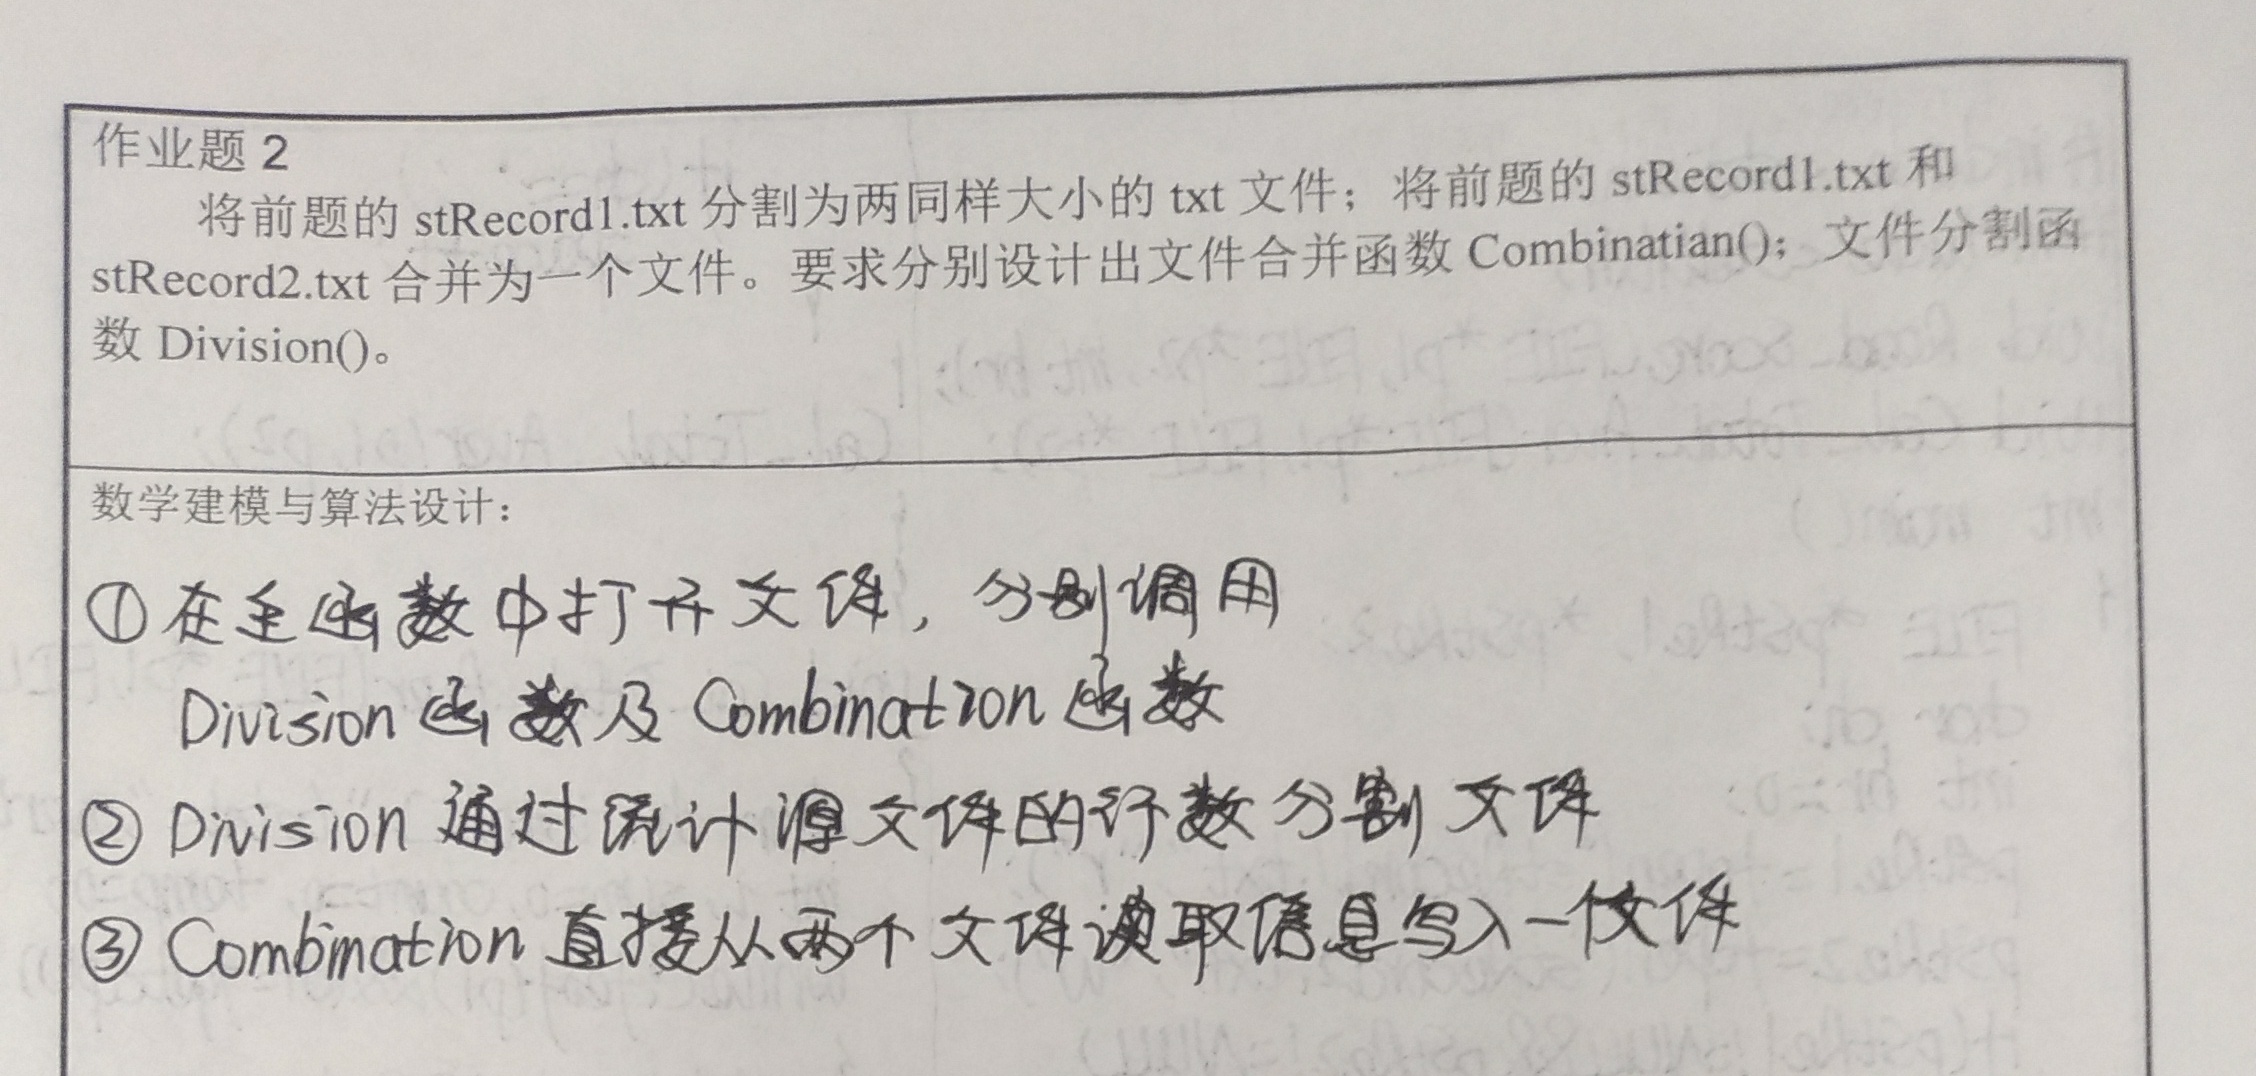 作业题 2
将前题的 stRecord1.txt 分割为两同样大小的 txt 文件；将前题的 stRecord1.txt 和
stRecord2.txt 合并为一个文件。要求分别设计出文件合并函数 Combinatian()；文件分割函
数 Division()。
数学建模与算法设计：
①在主函数中打开文件，分别调用
Division 函数及 Combination 函数
② Division 通过统计源文件的行数分割文件
③ Combination 直接从两个文件读取信息写入一个文件